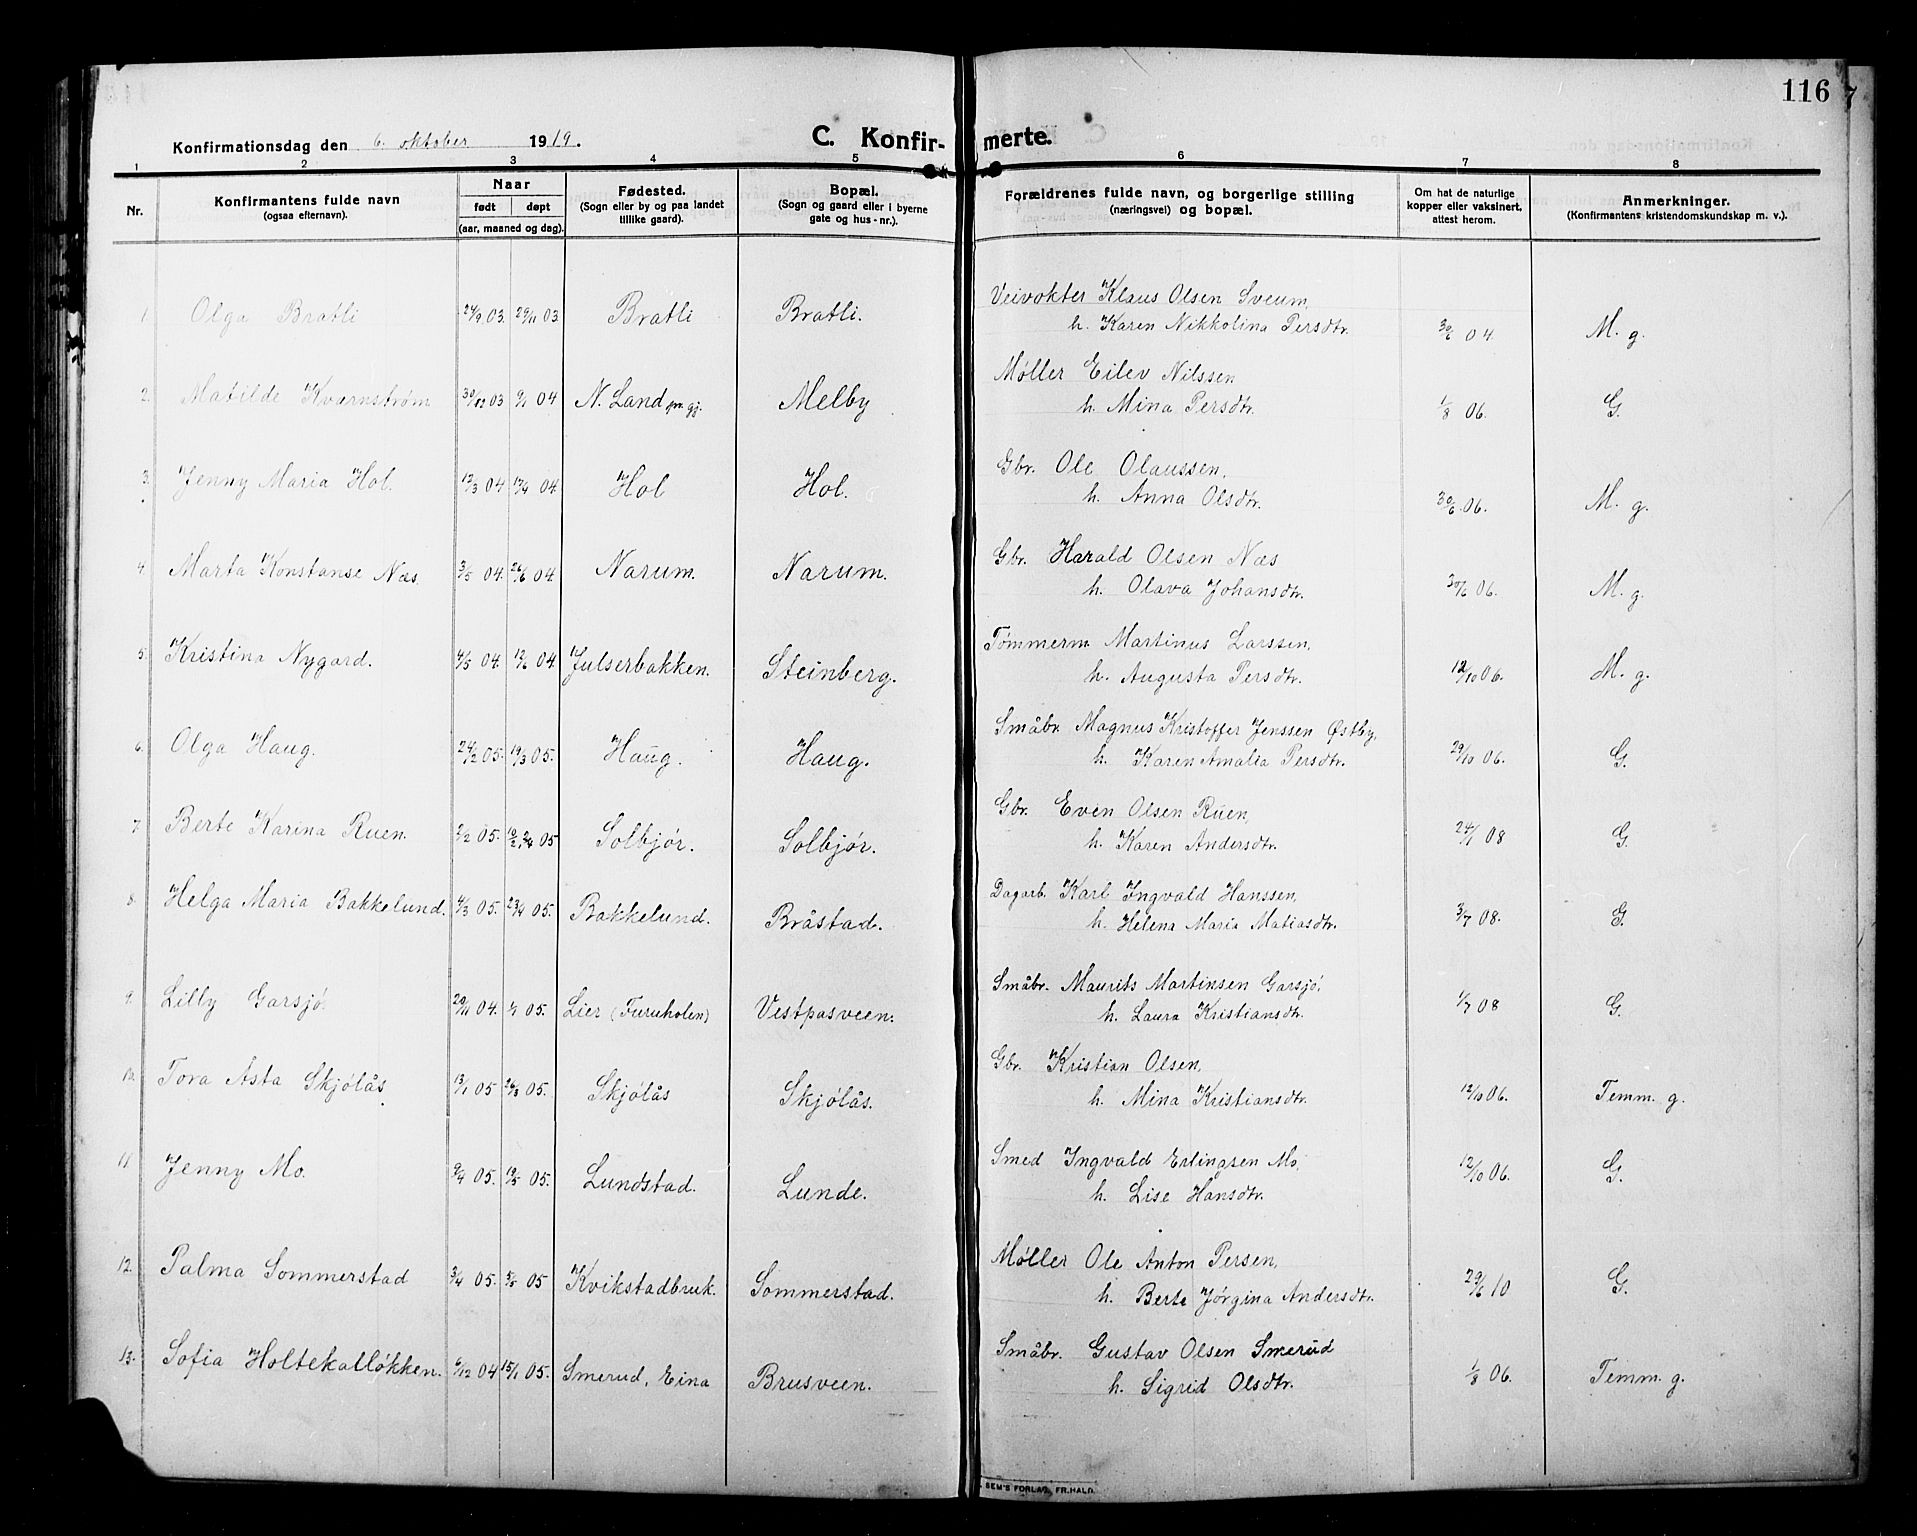 116
Konfirmationsdag den 6. oktober 1919.
C. Konfirmerte.
1 2 3 4 5 6 7 8
Nr.
Konfirmantens fulde navn
(ogsaa efternavn).
Naar
født døpt
(aar, maaned og dag).
Fødested.
(Sogn eller by og paa landet
tillike gaard).
Bopæl.
(Sogn og gaard eller i byerne
gate og hus-nr.).
Forældrenes fulde navn, og borgerlige stilling
(næringsvei) og bopæl.
Om hat de naturlige
kopper eller vaksinert,
attest herom.
Anmerkninger.
(Konfirmantens kristendomskundskap m. v.).
1. Olga Bratli 24/9 03. 29/11 03. Bratli Bratli. Veivokter Klaus Olsen Sveum,
h. Karen Nikkolina Persdtr. 30/6 04 M. g.
2. Matilde Kvarnstrøm 30/12 03 9/1 04 N. Land pr. gj. Melby Møller Eilev Nilssen
h. Mina Persdtr. 1/8 06. G.
3. Jenny Maria Hol. 12/3 04 17/4 04. Hol Hol. Gbr. Ole Olaussen,
h. Anna Olsdtr. 30/6 06. M. g.
4. Marta Konstanse Næs. 3/5 04. 26/6 04 Narum. Narum. Gbr. Harald Olsen Næs
h. Olava Johansdtr. 30/6 06. M. g.
5. Kristina Nygard. 4/5 04. 12/6 04. Julserbakken. Steinberg. Tømmerm. Martinus Larssen,
h. Augusta Persdtr. 12/10 06. M. g.
6. Olga Haug. 24/2 05. 19/3 05. Haug. Haug. Småbr. Magnus Kristoffer Jenssen Østby,
h. Karen Amalia Persdtr. 29/10 06. G.
7. Berte Karina Ruen. 2/2 05. 12/2, 24/4 05 Solbjør. Solbjør. Gbr. Even Olsen Ruen,
h. Karen Andersdtr. 24/1 08 G.
8. Helga Maria Bakkelund. 4/3 05. 23/4 05. Bakkelund. Bråstad. Dagarb. Karl Ingvald Hanssen,
h. Helena Maria Matiasdtr. 3/7 08. G.
9. Lilly Garsjø. 29/11 04. 1/1 05. Lier (Furuholen) Vestpasveen. Småbr. Maurits Martinsen Garsjø,
h. Laura Kristiansdtr. 1/7 08 G.
10. Tora Asta Skjølås 13/1 05 26/3 05. Skjølås Skjølås. Gbr. Kristian Olsen,
h. Mina Kristiansdtr. 12/10 06. Temm. g.
11 Jenny Mo. 9/4 05. 19/5 05. Lundstad. Lunde. Smed Ingvald Erlingsen Mo,
h. Lise Hansdtr. 12/10 06. G.
12. Palma Sommerstad 3/4 05. 5/5 05 Kvikstadbruk. Sommerstad. Møller Ole Anton Persen,
h. Berte Jørgina Andersdtr. 29/6 10 G.
13. Sofia Holtekalløkken. 6/12 04 15/1 05. Smerud, Eina Brusveen. Småbr. Gustav Olsen Smerud
h. Sigrid Olsdtr. 1/8 06. Temm. g.
SEM'S FORLAG, FR.HALD.